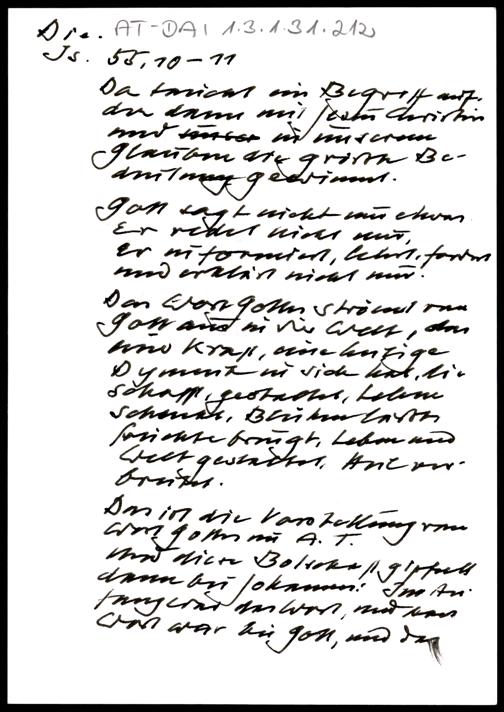 Die. AT-DAI 1.3.1.31.212
Js. 55, 10-11
Da taucht ein Begriff auf,
der dann mit Jesus Christus
und in unserem
Glauben die größte Be-
deutung gewinnt.
Gott sagt nicht nur etwas.
Er redet nicht nur,
er informiert, lehrt, fordert
und erklärt nicht nur.
Das Wort Gottes strömt von
Gott aus in die Welt, das
eine Kraft, eine heutige
Dynamik in sich hat, die
schafft, gestaltet, Leben
schenkt, Blühen lässt,
Früchte bringt, Leben und
Welt gestaltet, Heil ver-
breitet.
Das ist die Vorstellung vom
Wort Gottes im A. T.
Und diese Botschaft gipfelt
dann bei Johannes: Im An-
fang war das Wort, und das
Wort war bei Gott, und das